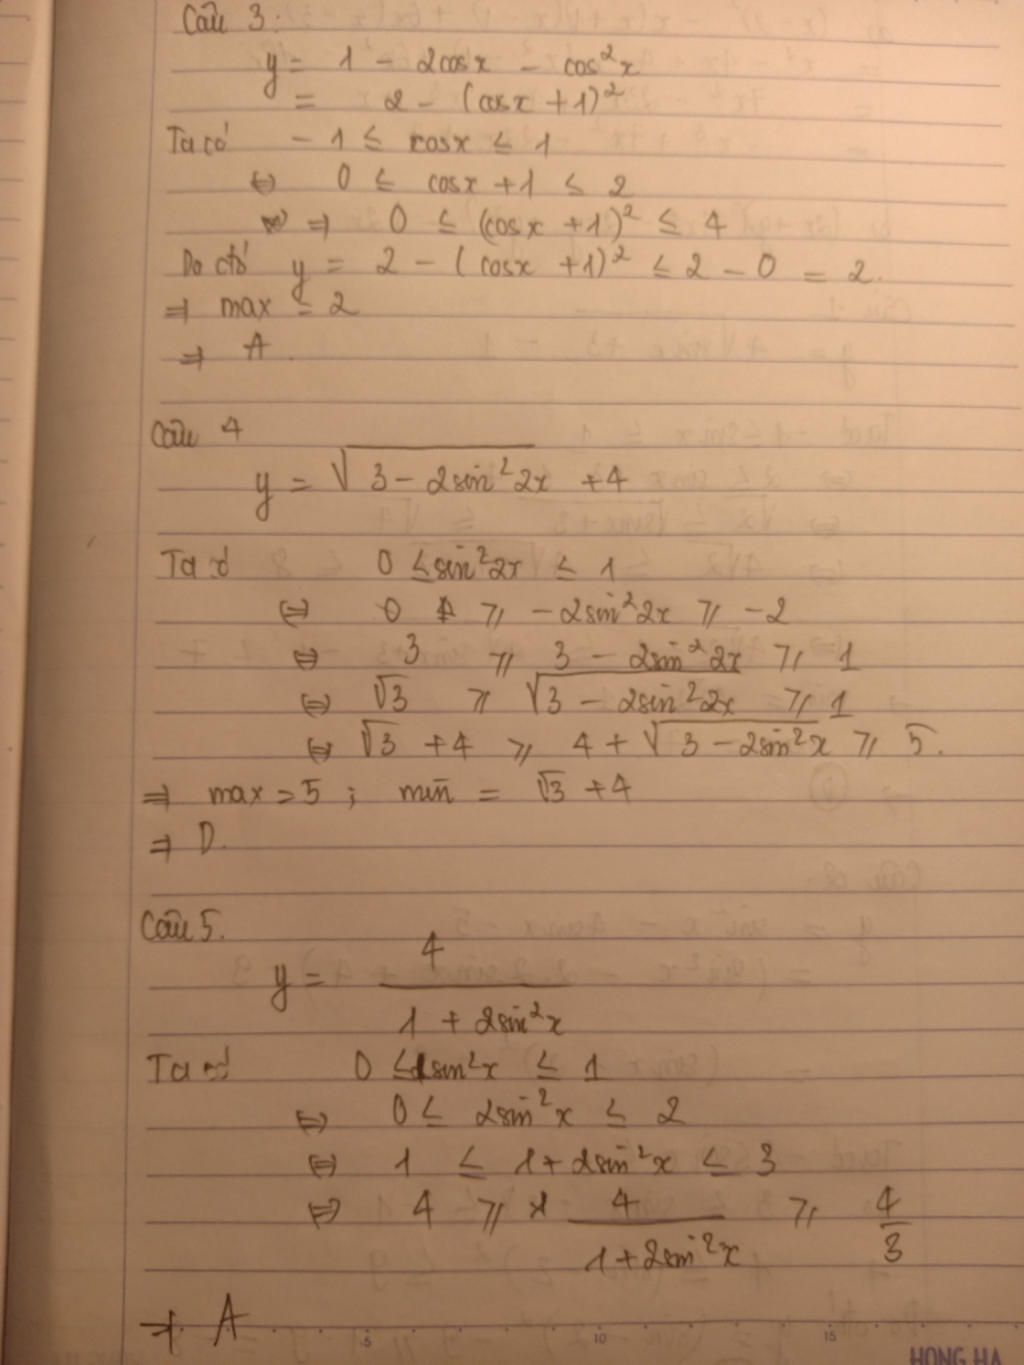 Câu 3:
y = 1 - 2cosx - cos²x
= 2 - (cosx + 1)²
Ta có - 1 ≤ cosx ≤ 1
⇔ 0 ≤ cosx + 1 ≤ 2
⇒ 0 ≤ (cosx + 1)² ≤ 4
Do đó y = 2 - (cosx + 1)² ≤ 2 - 0 = 2.
⇒ max ≤ 2
⇒ A.
Câu 4
y = √(3 - 2sin²2x) + 4
Ta có 0 ≤ sin²2x ≤ 1
⇔ 0 ⩾ - 2sin²2x ⩾ -2
⇔ 3 ⩾ 3 - 2sin²2x ⩾ 1
⇔ √3 ⩾ √(3 - 2sin²2x) ⩾ 1
⇔ √3 + 4 ⩾ 4 + √(3 - 2sin²x) ⩾ 5.
⇒ max = 5 ; min = √3 + 4
⇒ D.
Câu 5.
y = 4 / (1 + 2sin²x)
Ta có 0 ≤ sin²x ≤ 1
⇔ 0 ≤ 2sin²x ≤ 2
⇔ 1 ≤ 1 + 2sin²x ≤ 3
⇔ 4 ⩾ 4 / (1 + 2sin²x) ⩾ 4/3
⇒ A
5 10 15
HONG HA